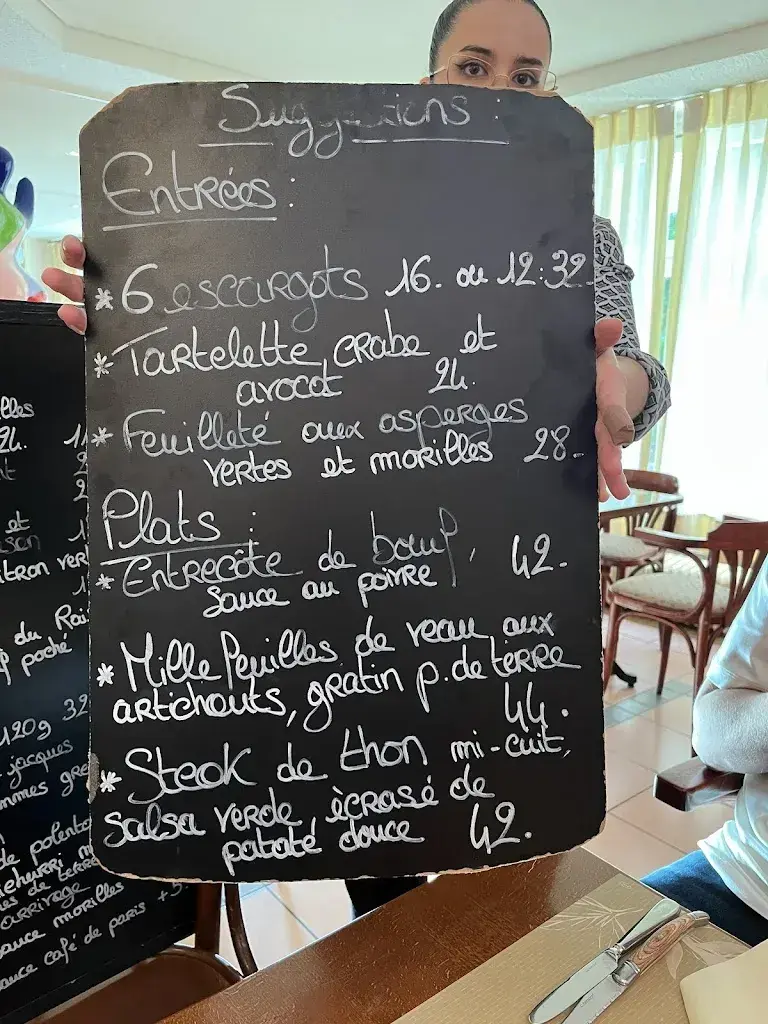 Suggestions :
Entrées :
* 6 escargots 16. ou 12 : 32.
* Tartelette crabe et
avocat 24.
* Feuilleté aux asperges
vertes et morilles 28.-
Plats :
* Entrecôte de bœuf, 42.-
sauce au poivre
* Mille feuilles de veau aux
artichauts, gratin p. de terre
44.
* Steak de thon mi-cuit,
salsa verde, écrasé de
patate douce 42.
24.
et
itron vert
du Rai
poché
120g 32
jacques
de polenta
arrivage
sauce morilles
sauce café de paris +5